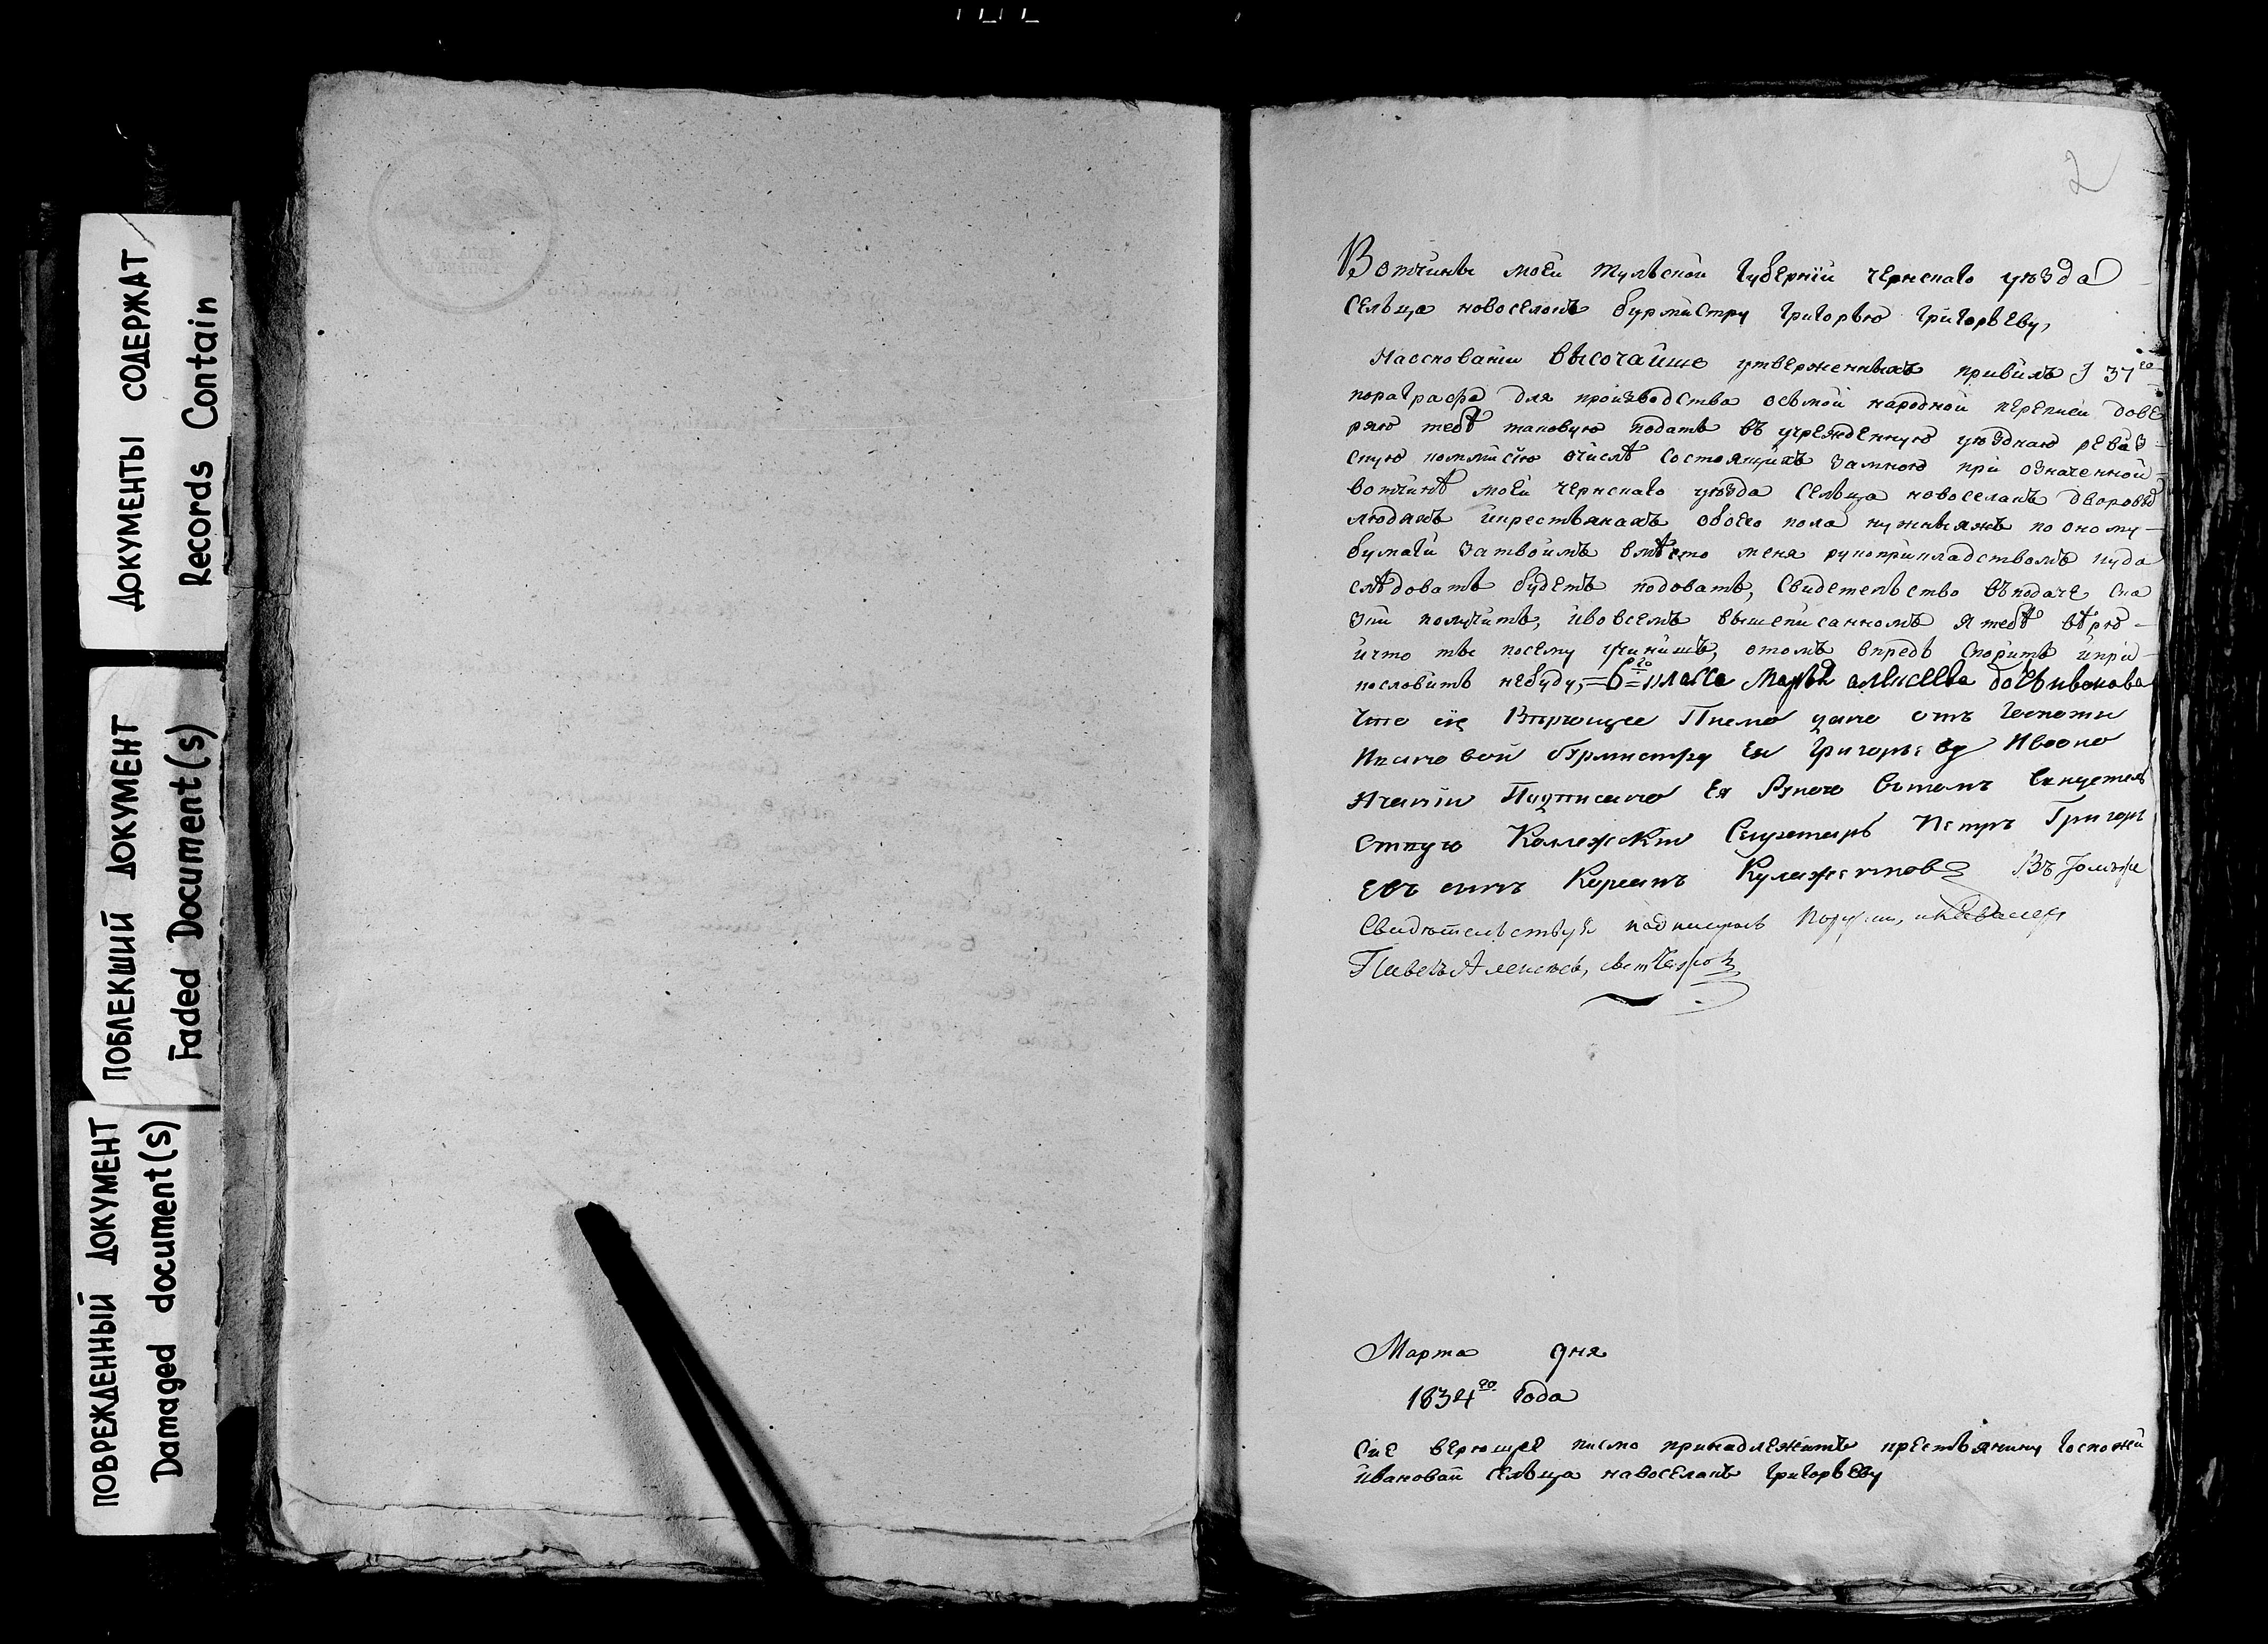 ДОКУМЕНТЫ СОДЕРЖАТ
Records Contain
ПОБЛЕКШИЙ ДОКУМЕНТ
Faded Document(s)
ПОВРЕЖДЕННЫЙ ДОКУМЕНТ
Damaged document(s)
2
Вотчины моей тульской губернiи чернскаго уѣзда
сельца новоселокъ бурмистру григорью григорьеву,
Наосновании высочайше утверженныхъ правилъ 37го
пораграфа для производства осьмой народной переписи дове
ряю тебѣ таковую подать въ учрежденную уѣзднаю ревиз
скую коммисiю очислѣ состоящихъ замною при означенной
вотчинѣ моей чернскаго уѣзда сельца новоселакъ дворовы
людяхъ икрестьянахъ обоего пола нужныяжъ по оному
бумаги затвоимъ вмѣсто меня рукоприкладствомъ куда
слѣдовать будетъ подовать, свидетельство въподаче ска
зки получить, ивовсемъ вышеписанномъ я тебѣ вѣрю
ичто ты посему учинишъ, отомъ впредь спорить ипри
кословить небуду,=6=го класса Марья алексеева дочь ивонова
Что сiе Вѣрющее Писмо дано отъ Госпожи
Ивановой бурмистру Ея Григорьеву
Подписано Ея Рукою Вътомъ Свидетель
ствую Колежскiй Секретарь Петръ Григорь
евъ сынъ Въ томъже
Свидѣтельствуя подписуюсь
Павелъ Алексеевъ,
Марта дня
1834го Года
Сие верющее писмо принадлежитъ крестьянину госпожи
ивановай сельца навоселакъ григорьеву